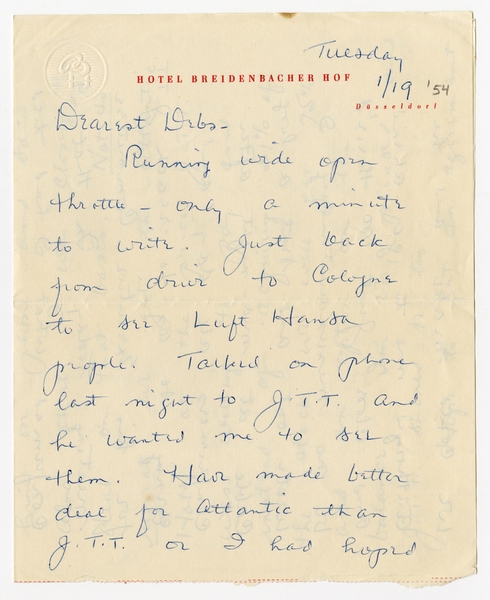 Tuesday
HOTEL BREIDENBACHER HOF
1/19 '54
Düsseldorf
Dearest Debs-
Running wide open
throttle - only a minute
to write. Just back
from drive to Cologne
to see Luft Hansa
people. Talked on phone
last night to J.T.T. and
he wanted me to see
them. Have made better
deal for Atlantic than
J.T.T. or I had hoped